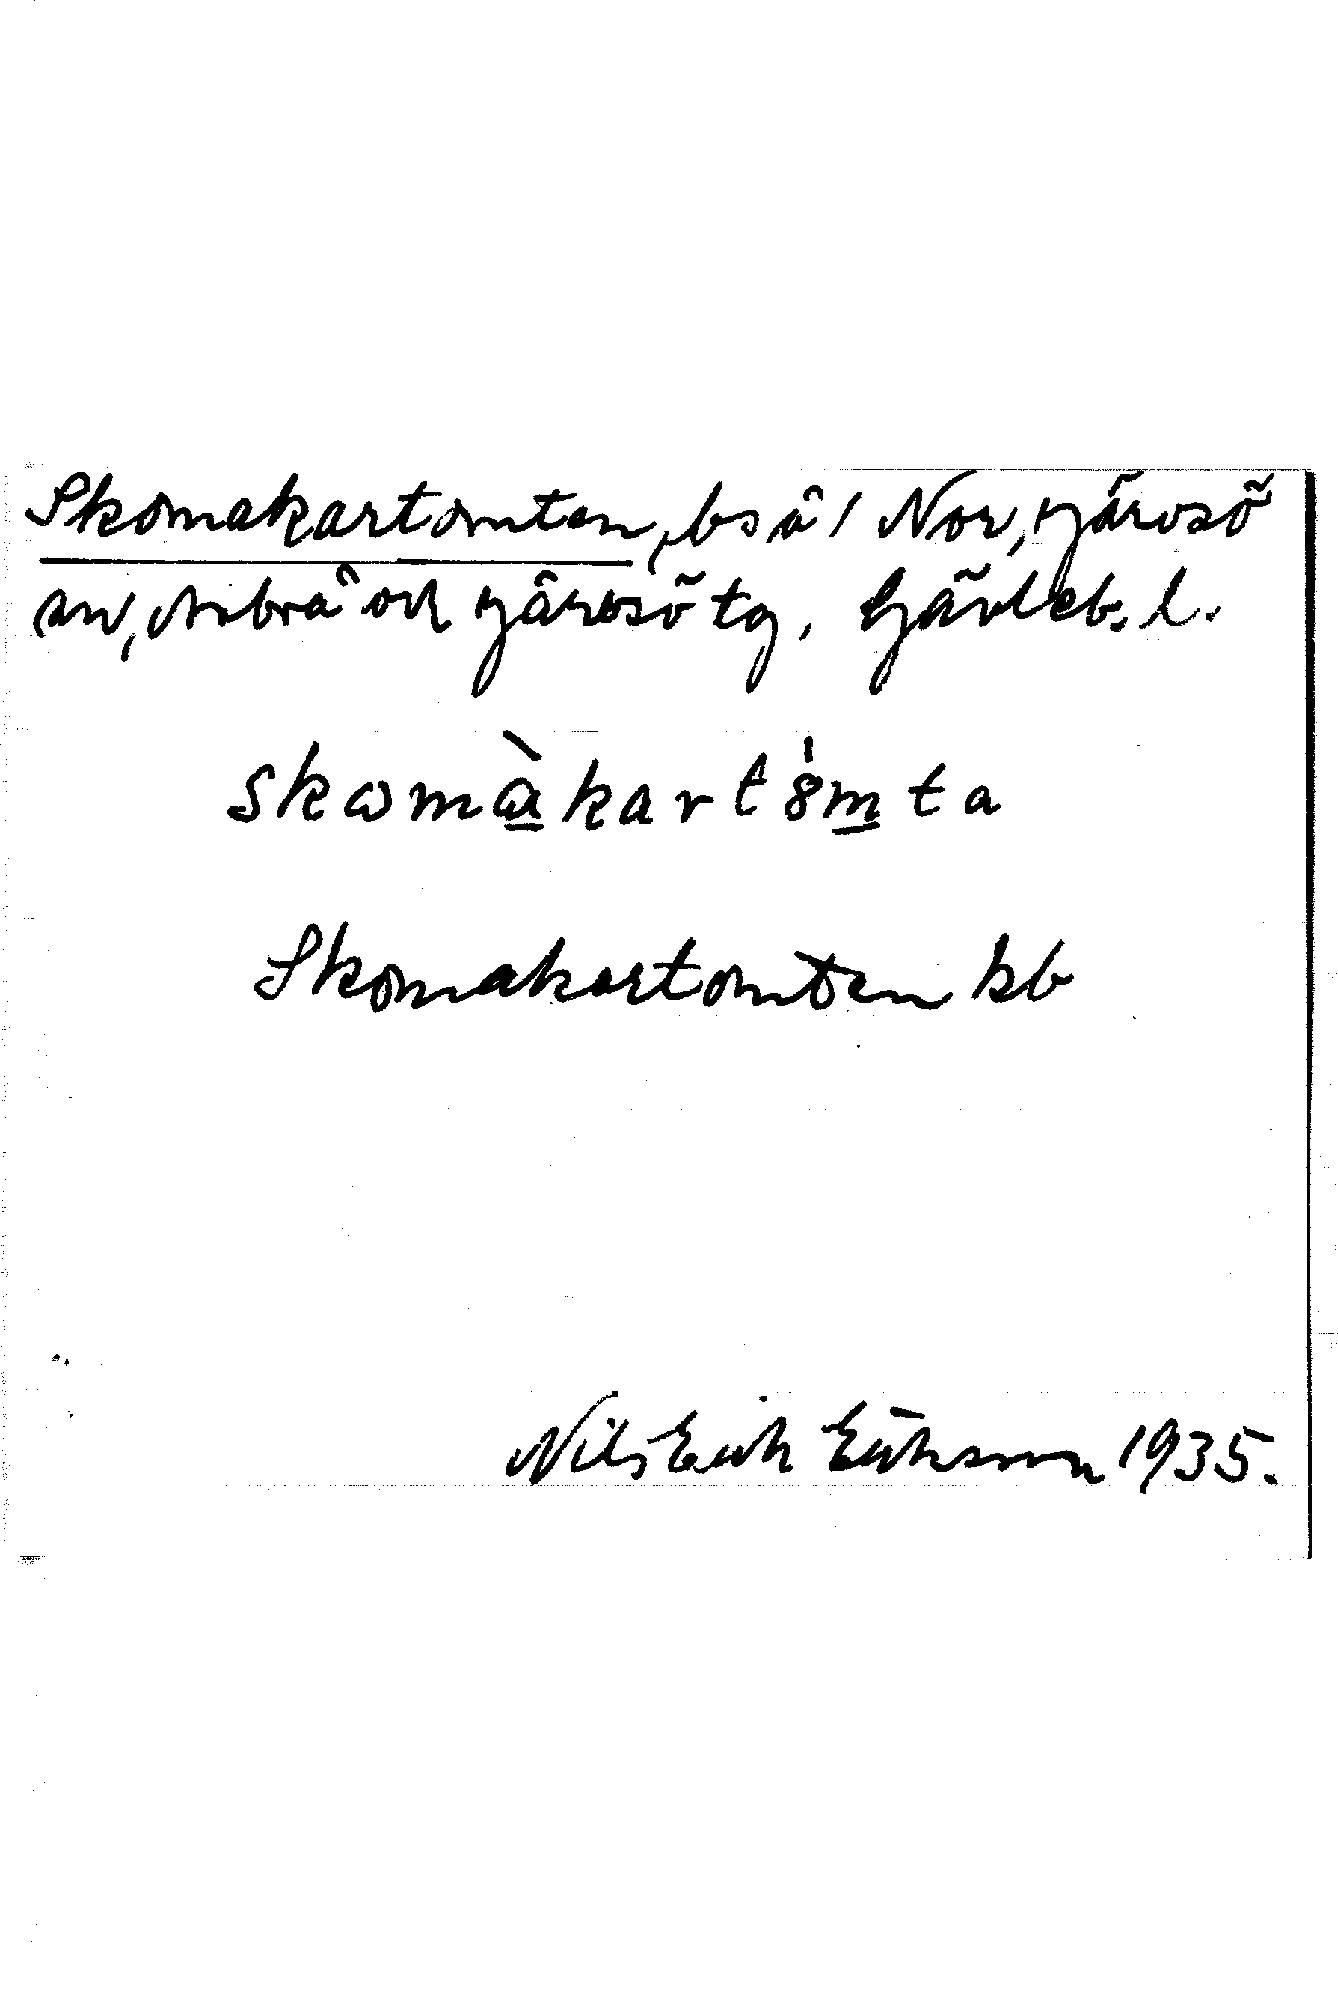 Skomakartomten, bs å 1 Nor, Järvsö
sn, Arbrå och Järvsö tg, Gävleb. l.
skωmàkartȣmta
Skomakartomten kb
Nils Erik Eriksson 1935.